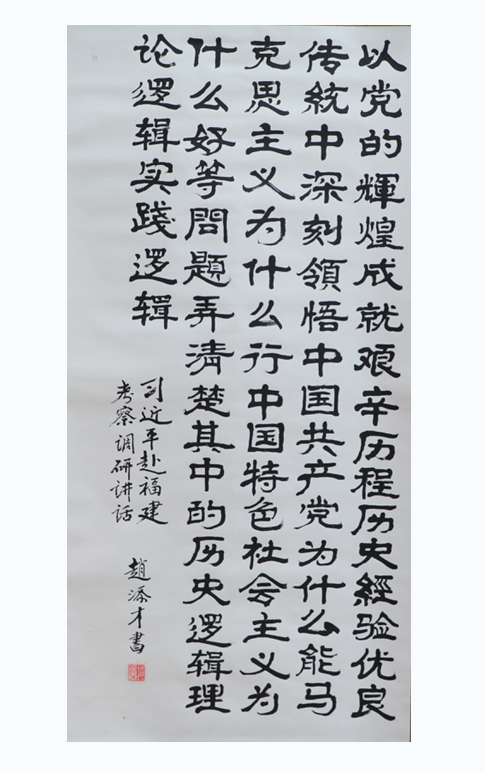 以党的輝煌成就艰辛历程历史經验优良
传統中深刻領悟中国共产党为什么能马
克思主义为什么行中国特色社会主义为
什么好等問題弄清楚其中的历史逻辑理
论逻辑实践逻辑
习近平赴福建
考察调研讲话
趙添才書